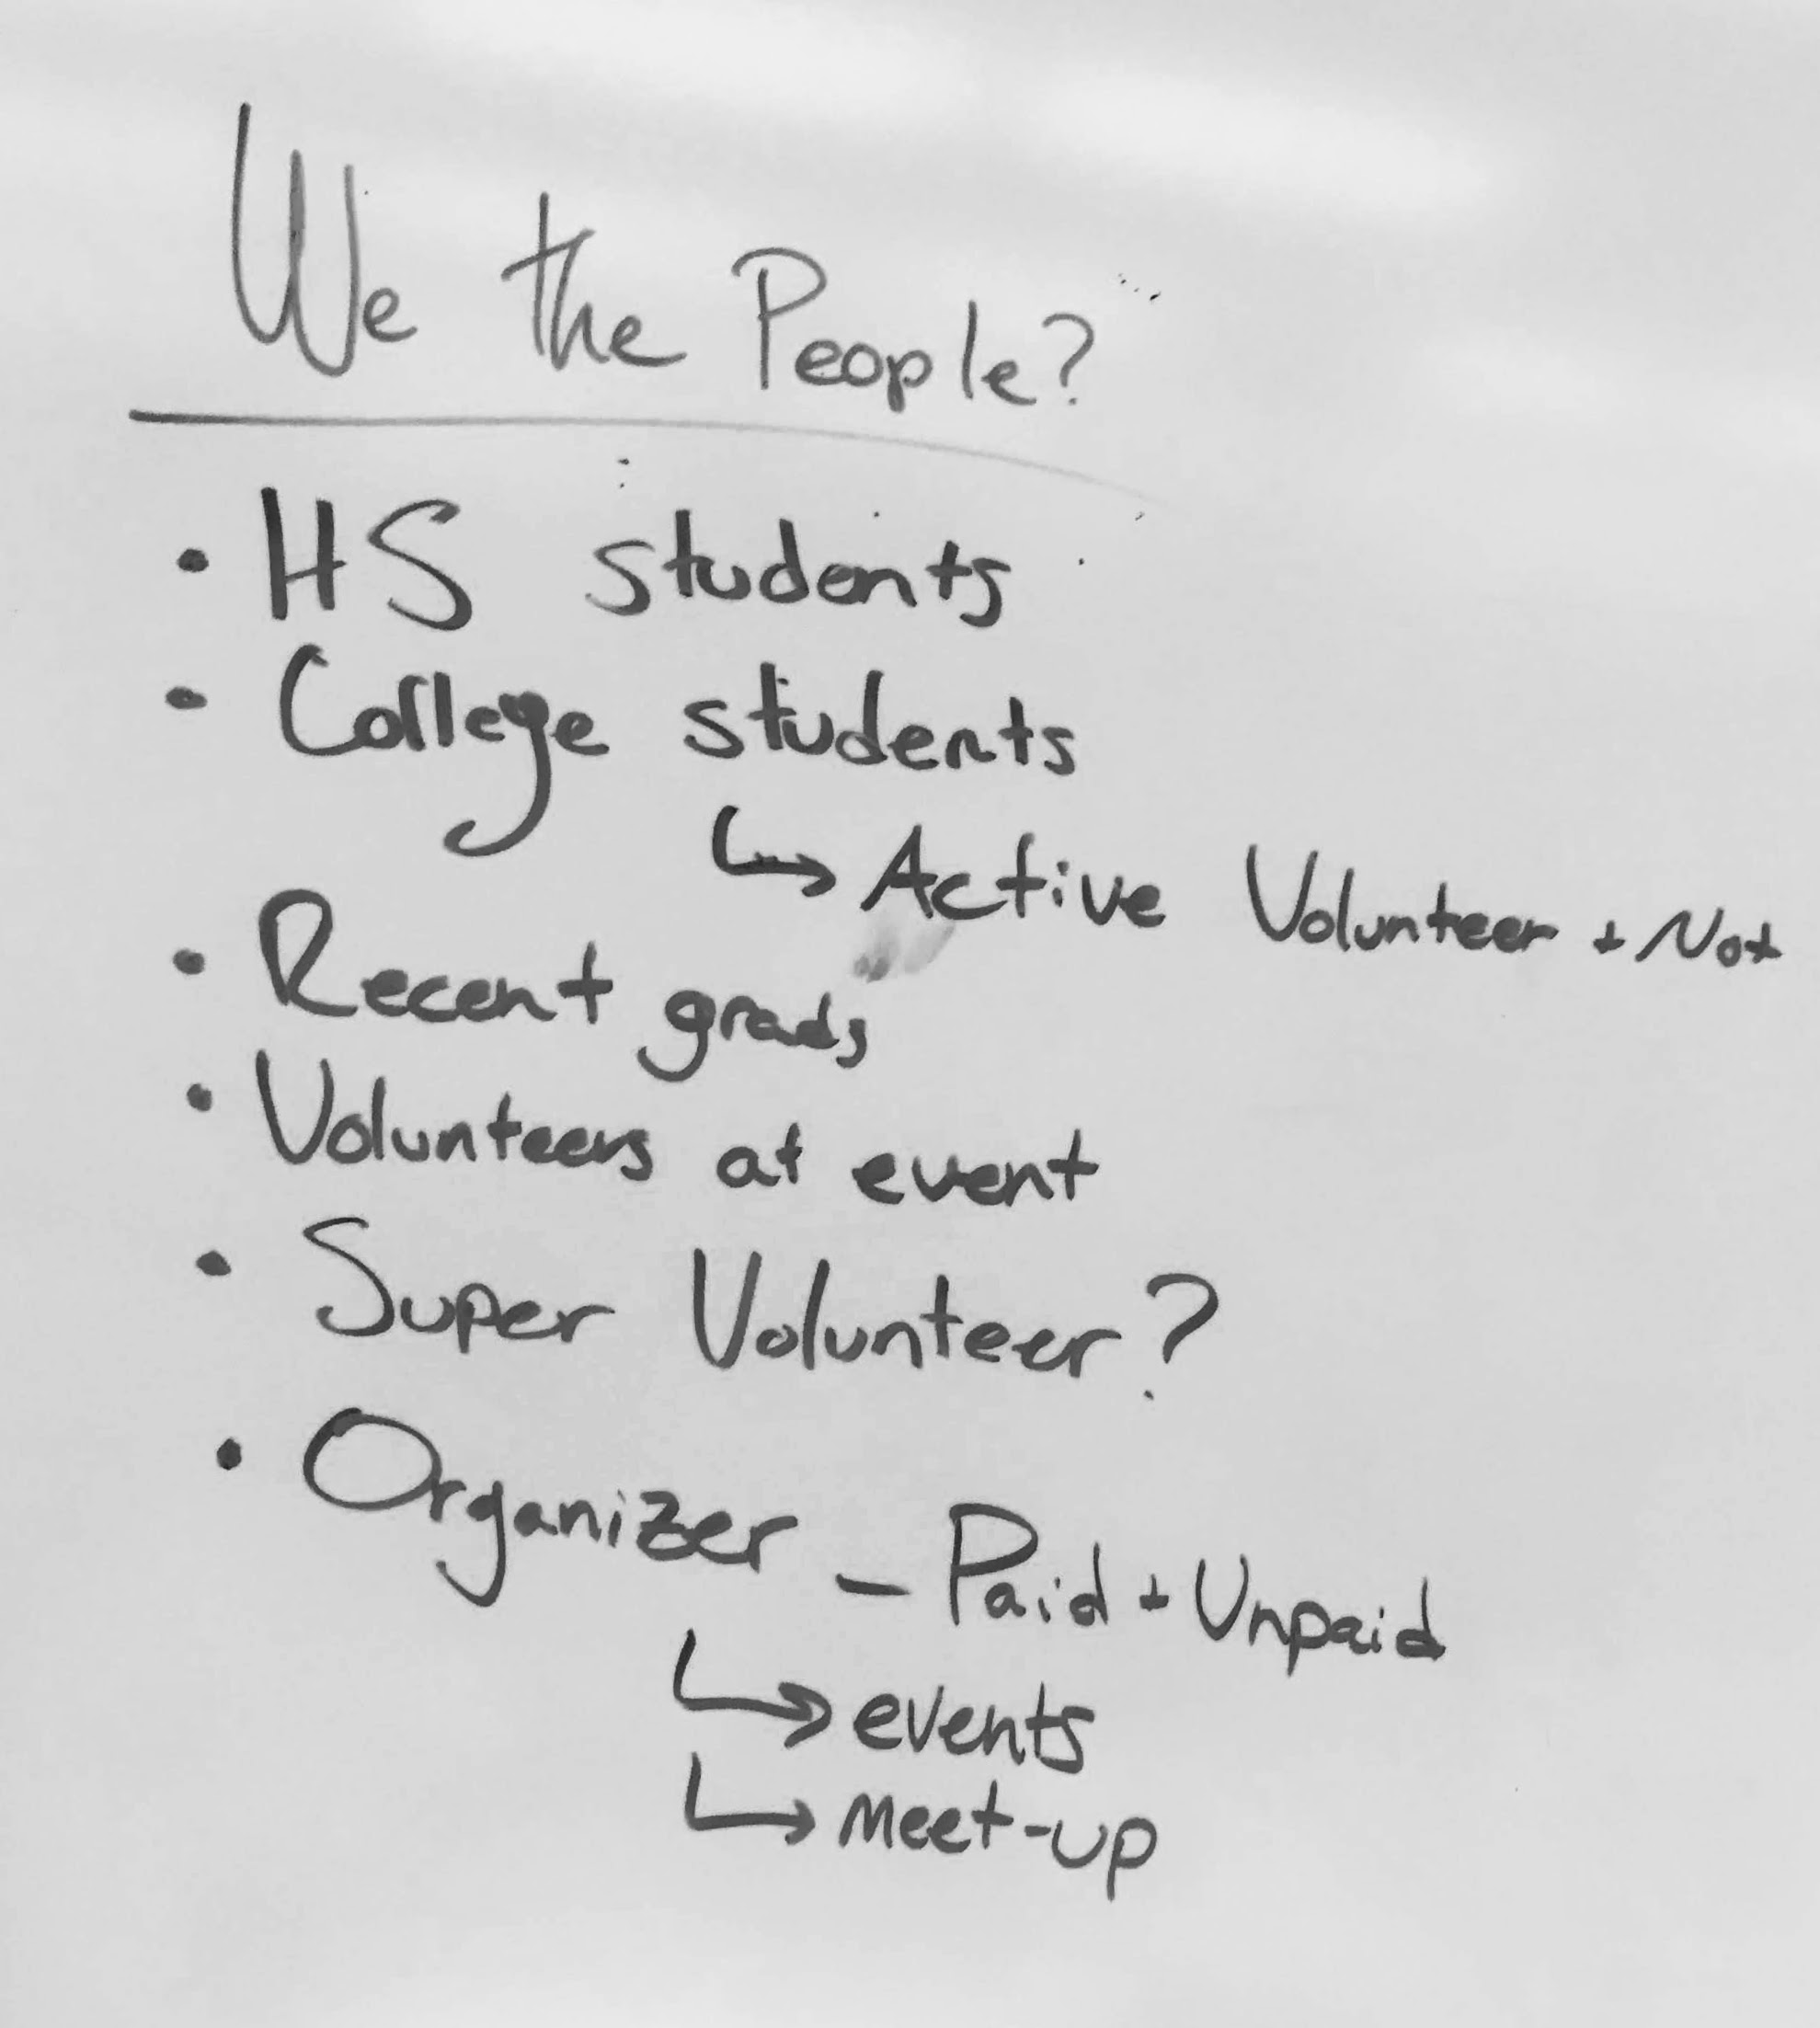 We the People?
• HS students
• College students
↳ Active Volunteer + Not
• Recent grads
• Volunteers at event
• Super Volunteer?
• Organizer - Paid + Unpaid
↳ events
↳ Meet-up